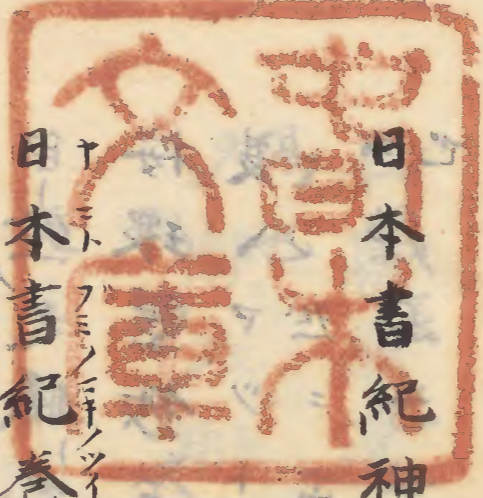 日本書紀神
ヤマト フミノマキノツイ
日本書紀巻
文庫